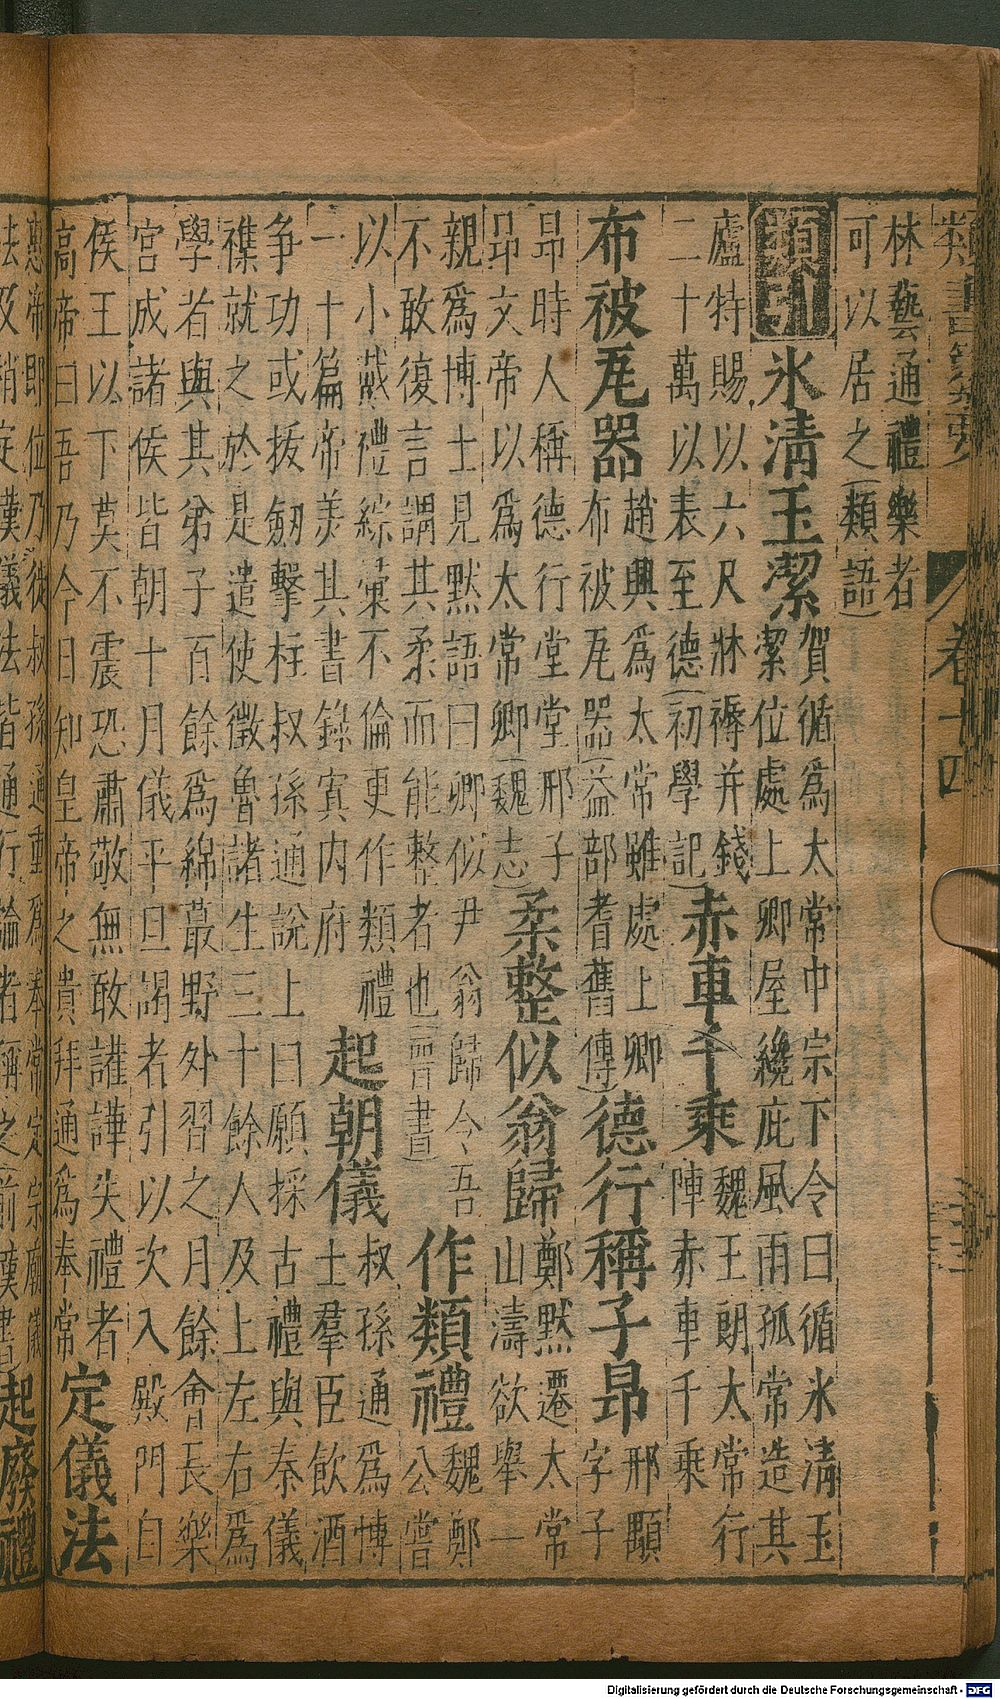 類書纂要 卷十四
林藝通禮樂者
可以居之(類語)
類引
氷清玉潔
賀循爲太常中宗下令曰循氷清玉
潔位處上卿屋纔庇風雨孤常造其
廬特賜以六尺牀褥并錢
二十萬以表至德(初學記)
赤車千乘
魏王朗太常行
陣赤車千乘
布被瓦器
趙興爲太常雖處上卿
布被瓦器(益部耆舊傳)
德行稱子昂
邢顒
字子
昂時人稱德行堂堂邢子
昂文帝以爲太常卿(魏志)
柔整似翁歸
鄭默遷太常
山濤欲舉一
親爲博士見默語曰卿似尹翁歸令吾
不敢復言謂其柔而能整者也(晉書)
作類禮
魏鄭
公嘗
以小戴禮綜彙不倫更作類禮
二十篇帝美其書錄寘内府
起朝儀
叔孫通爲博
士羣臣飲酒
争功或拔劒擊柱叔孫通說上曰願採古禮與秦儀
襍就之於是遣使徵魯諸生三十餘人及上左右爲
學者與其弟子百餘爲綿蕞野外習之月餘會長樂
宮成諸侯皆朝十月儀平旦謁者引以次入殿門自
侯王以下莫不震恐肅敬無敢讙譁失禮者
高帝曰吾乃今日知皇帝之貴拜通爲奉常
定儀法
惠帝即位乃徙叔孫通重爲奉常定宗廟儀
法及稍定漢儀法皆通行論者稱之(前漢書)
起廢禮
Digitalisierung gefördert durch die Deutsche Forschungsgemeinschaft - DFG